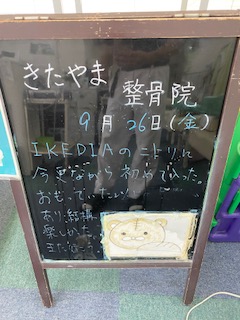 きたやま
整骨院
9月26日(金)
IKEDIAのニトリに
今更ながら初めて入った。
おもっていたより
あり、結構
楽しかった。
また行こう